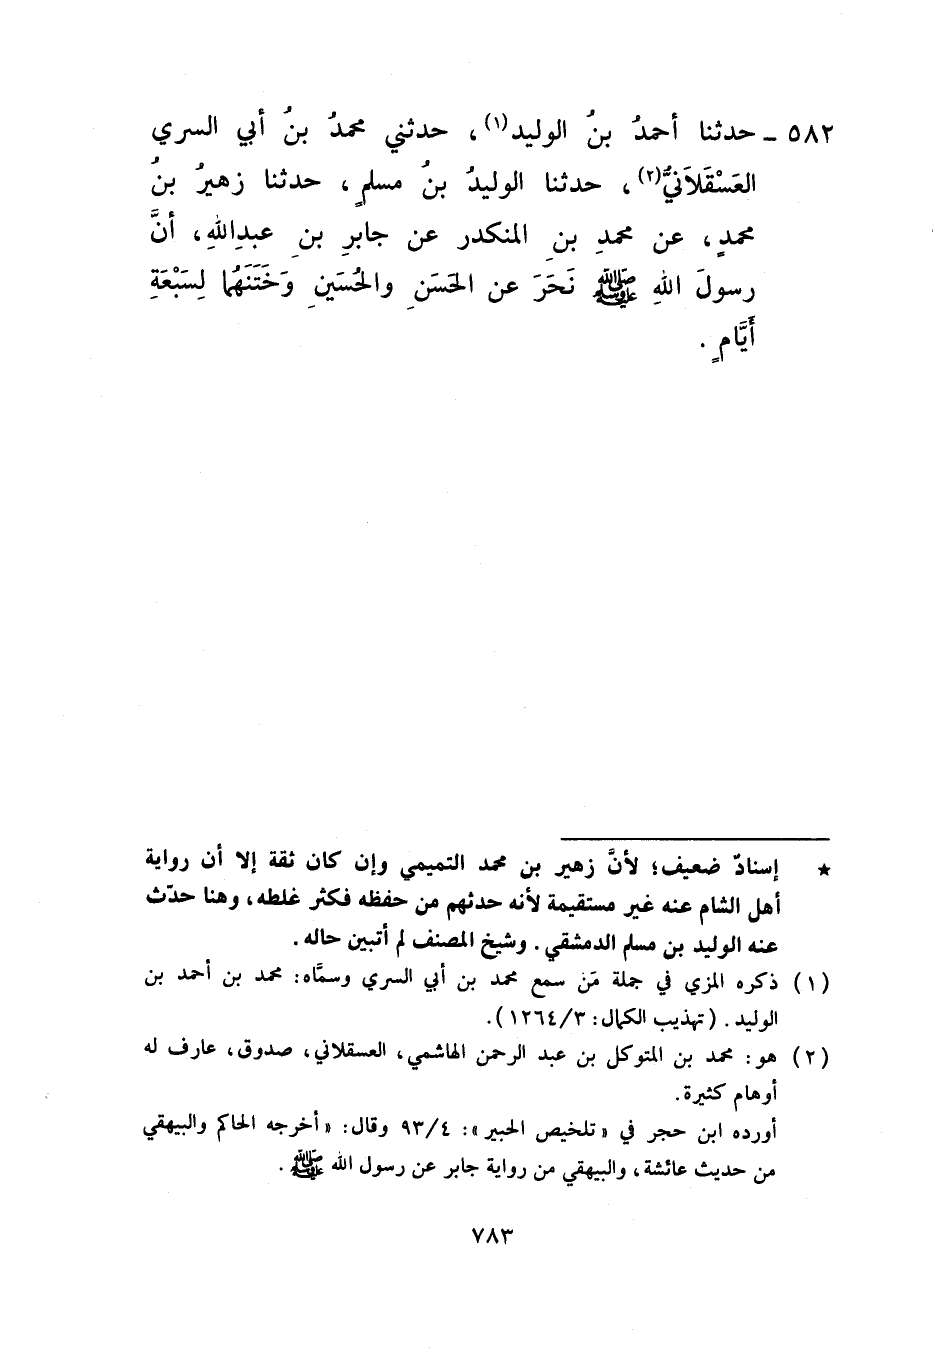 ٥٨٢ ـ حدثنا أحمدُ بنُ الوليد(١)، حدثني محمدُ بنُ أبي السري
العَسْقَلاَنيُّ(٢)، حدثنا الوليدُ بنُ مسلمٍ، حدثنا زهيرُ بنُ
محمدٍ، عن محمدِ بنِ المنكدر عن جابرِ بنِ عبدِاللهِ، أنَّ
رسولَ اللهِ ﷺ نَحَرَ عن الحَسَنِ والحُسَينِ وَخَتَنَهُما لِسَبْعَةِ
أَيَّامٍ .
★ إسنادٌ ضعيف؛ لأنَّ زهير بن محمد التميمي وإن كان ثقة إلا أن رواية
أهل الشام عنه غير مستقيمة لأنه حدثهم من حفظه فكثر غلطه، وهنا حدّث
عنه الوليد بن مسلم الدمشقي. وشيخ المصنف لم أتبين حاله.
(١) ذكره المزي في جملة مَن سمع محمد بن أبي السري وسمَّاه: محمد بن أحمد بن
الوليد. (تهذيب الكمال: ١٢٦٤/٣).
(٢) هو: محمد بن المتوكل بن عبد الرحمن الهاشمي، العسقلاني، صدوق، عارف له
أوهام كثيرة.
أورده ابن حجر في «تلخيص الحبير»: ٩٣/٤ وقال: «أخرجه الحاكم والبيهقي
من حديث عائشة، والبيهقي من رواية جابر عن رسول الله ﷺ .
٧٨٣